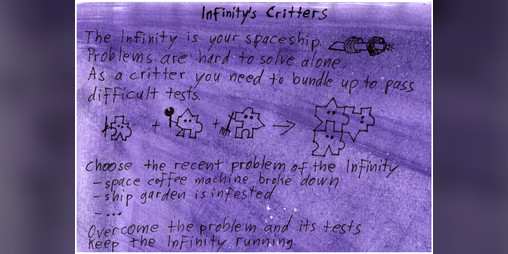 Infinity's Critters
The Infinity is your spaceship.
Problems are hard to solve alone.
As a critter you need to bundle up to pass
difficult tests.
+ + →
Choose the recent problem of the Infinity.
- space coffee machine broke down
- ship garden is infested
- ...
Overcome the problem and its tests
Keep the Infinity running.